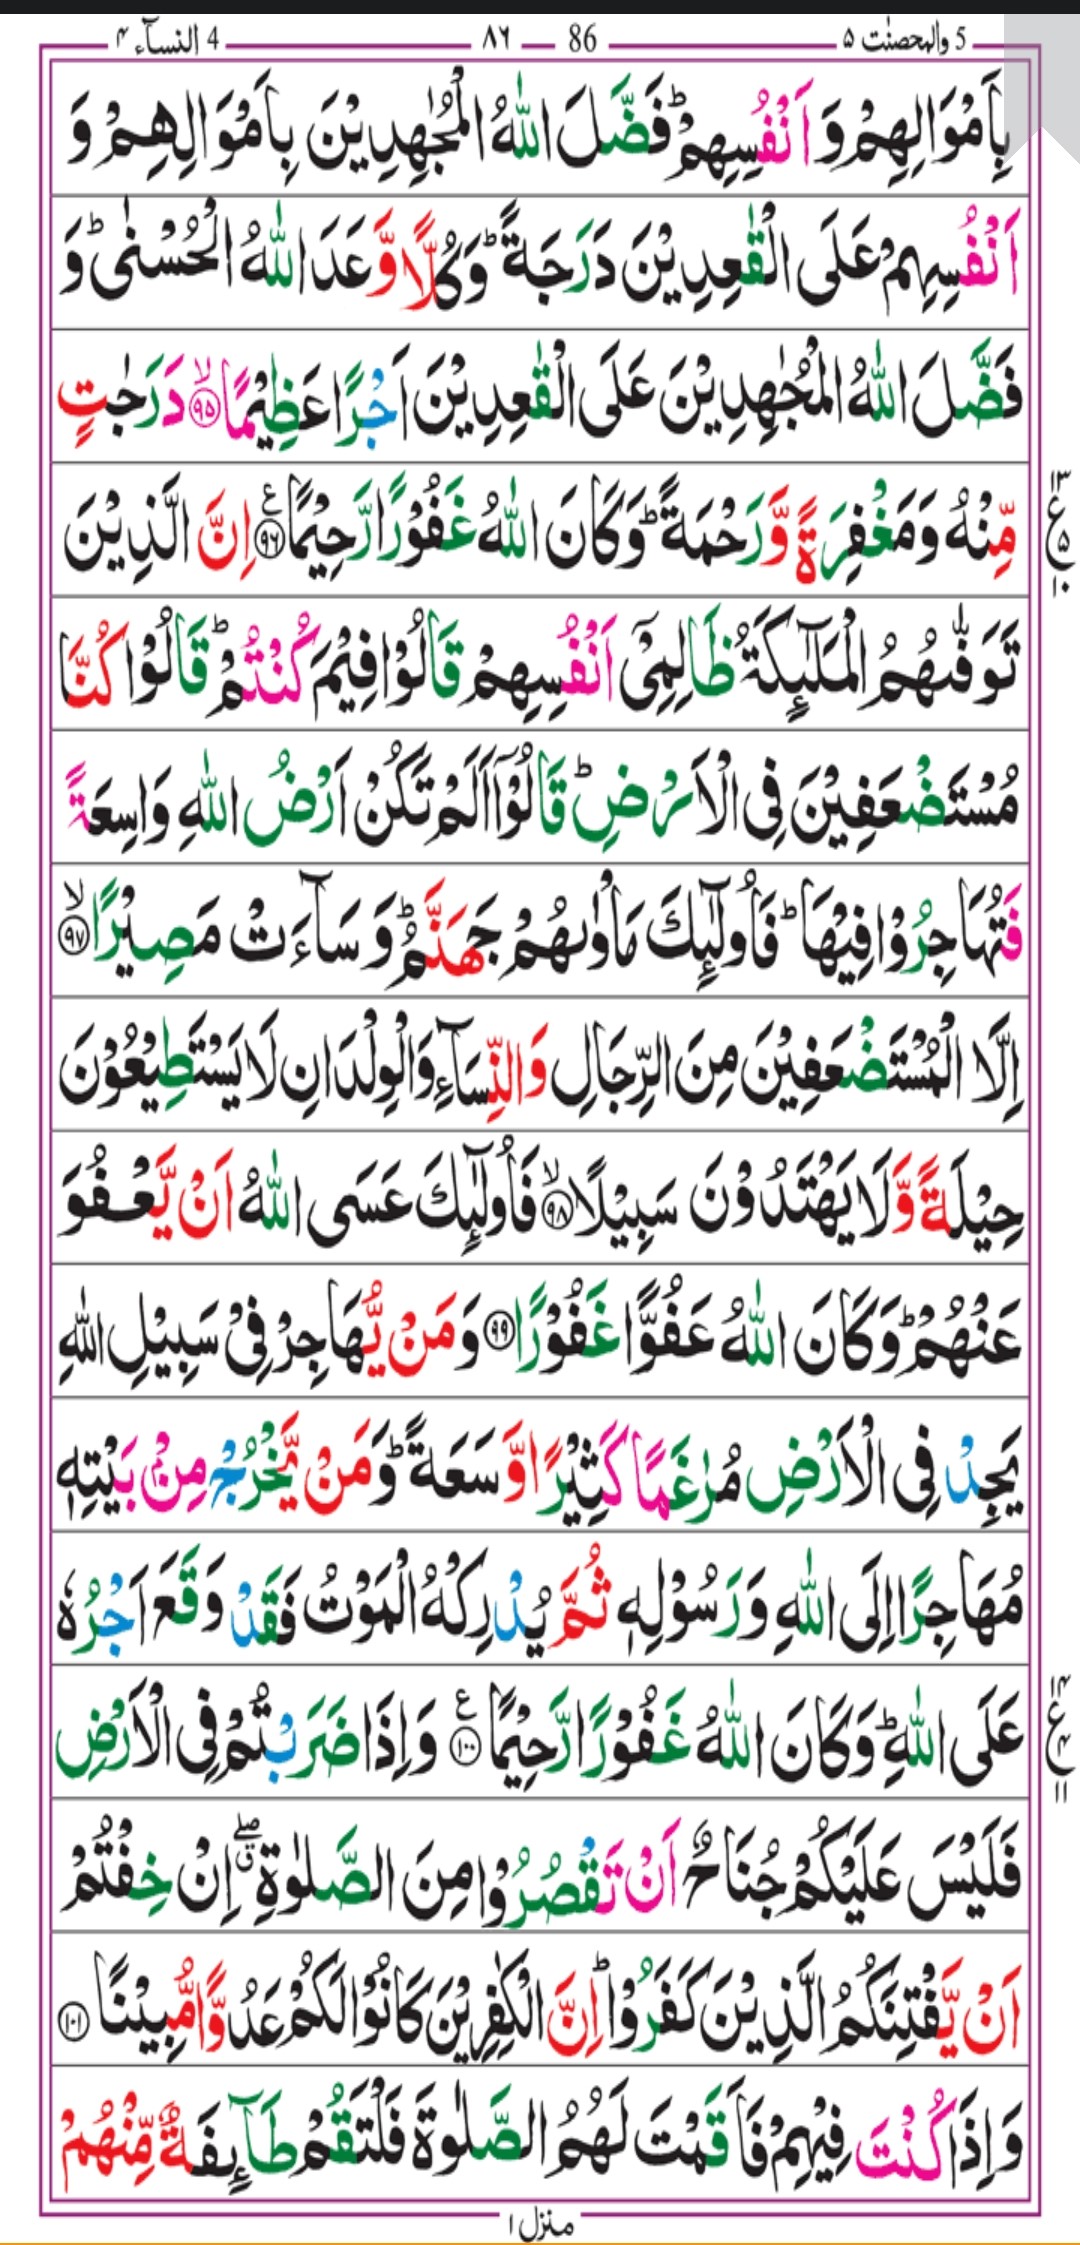 5 والمحصنٰت ۵ 86 ۸۶ 4 النسآء ۴
بِاَمْوَالِهِمْ وَ اَنْفُسِهِمْ ؕ فَضَّلَ اللّٰهُ الْمُجٰهِدِیْنَ بِاَمْوَالِهِمْ وَ
اَنْفُسِهِمْ عَلَی الْقٰعِدِیْنَ دَرَجَةً ؕ وَكُلًّا وَّعَدَ اللّٰهُ الْحُسْنٰی ؕ وَ
فَضَّلَ اللّٰهُ الْمُجٰهِدِیْنَ عَلَی الْقٰعِدِیْنَ اَجْرًا عَظِیْمًا ۙ﴿۹۵﴾ دَرَجٰتٍ
مِّنْهُ وَمَغْفِرَةً وَّرَحْمَةً ؕ وَكَانَ اللّٰهُ غَفُوْرًا رَّحِیْمًا ﴿۹۶﴾ع اِنَّ الَّذِیْنَ
۱۳ ع ۵ ۱۰
تَوَفّٰىهُمُ الْمَلٰٓىِٕكَةُ ظَالِمِیْۤ اَنْفُسِهِمْ قَالُوْا فِیْمَ كُنْتُمْ ؕ قَالُوْا كُنَّا
مُسْتَضْعَفِیْنَ فِی الْاَرْضِ ؕ قَالُوْۤا اَلَمْ تَكُنْ اَرْضُ اللّٰهِ وَاسِعَةً
فَتُهَاجِرُوْا فِیْهَا ؕ فَاُولٰٓىِٕكَ مَاْوٰىهُمْ جَهَنَّمُ ؕ وَ سَآءَتْ مَصِیْرًا ۙ﴿۹۷﴾
اِلَّا الْمُسْتَضْعَفِیْنَ مِنَ الرِّجَالِ وَالنِّسَآءِ وَالْوِلْدَانِ لَا یَسْتَطِیْعُوْنَ
حِیْلَةً وَّلَا یَهْتَدُوْنَ سَبِیْلًا ۙ﴿۹۸﴾ فَاُولٰٓىِٕكَ عَسَی اللّٰهُ اَنْ یَّعْفُوَ
عَنْهُمْ ؕ وَكَانَ اللّٰهُ عَفُوًّا غَفُوْرًا ﴿۹۹﴾ وَمَنْ یُّهَاجِرْ فِیْ سَبِیْلِ اللّٰهِ
یَجِدْ فِی الْاَرْضِ مُرٰغَمًا كَثِیْرًا وَّسَعَةً ؕ وَمَنْ یَّخْرُجْ مِنْۢ بَیْتِهٖ
مُهَاجِرًا اِلَی اللّٰهِ وَرَسُوْلِهٖ ثُمَّ یُدْرِكْهُ الْمَوْتُ فَقَدْ وَقَعَ اَجْرُهٗ
عَلَی اللّٰهِ ؕ وَكَانَ اللّٰهُ غَفُوْرًا رَّحِیْمًا ﴿۱۰۰﴾ع وَاِذَا ضَرَبْتُمْ فِی الْاَرْضِ
۱۴ ع ۴ ۱۱
فَلَیْسَ عَلَیْكُمْ جُنَاحٌ اَنْ تَقْصُرُوْا مِنَ الصَّلٰوةِ ۖۗ اِنْ خِفْتُمْ
اَنْ یَّفْتِنَكُمُ الَّذِیْنَ كَفَرُوْا ؕ اِنَّ الْكٰفِرِیْنَ كَانُوْا لَكُمْ عَدُوًّا مُّبِیْنًا ﴿۱۰۱﴾
وَاِذَا كُنْتَ فِیْهِمْ فَاَقَمْتَ لَهُمُ الصَّلٰوةَ فَلْتَقُمْ طَآىِٕفَةٌ مِّنْهُمْ
منزل ۱